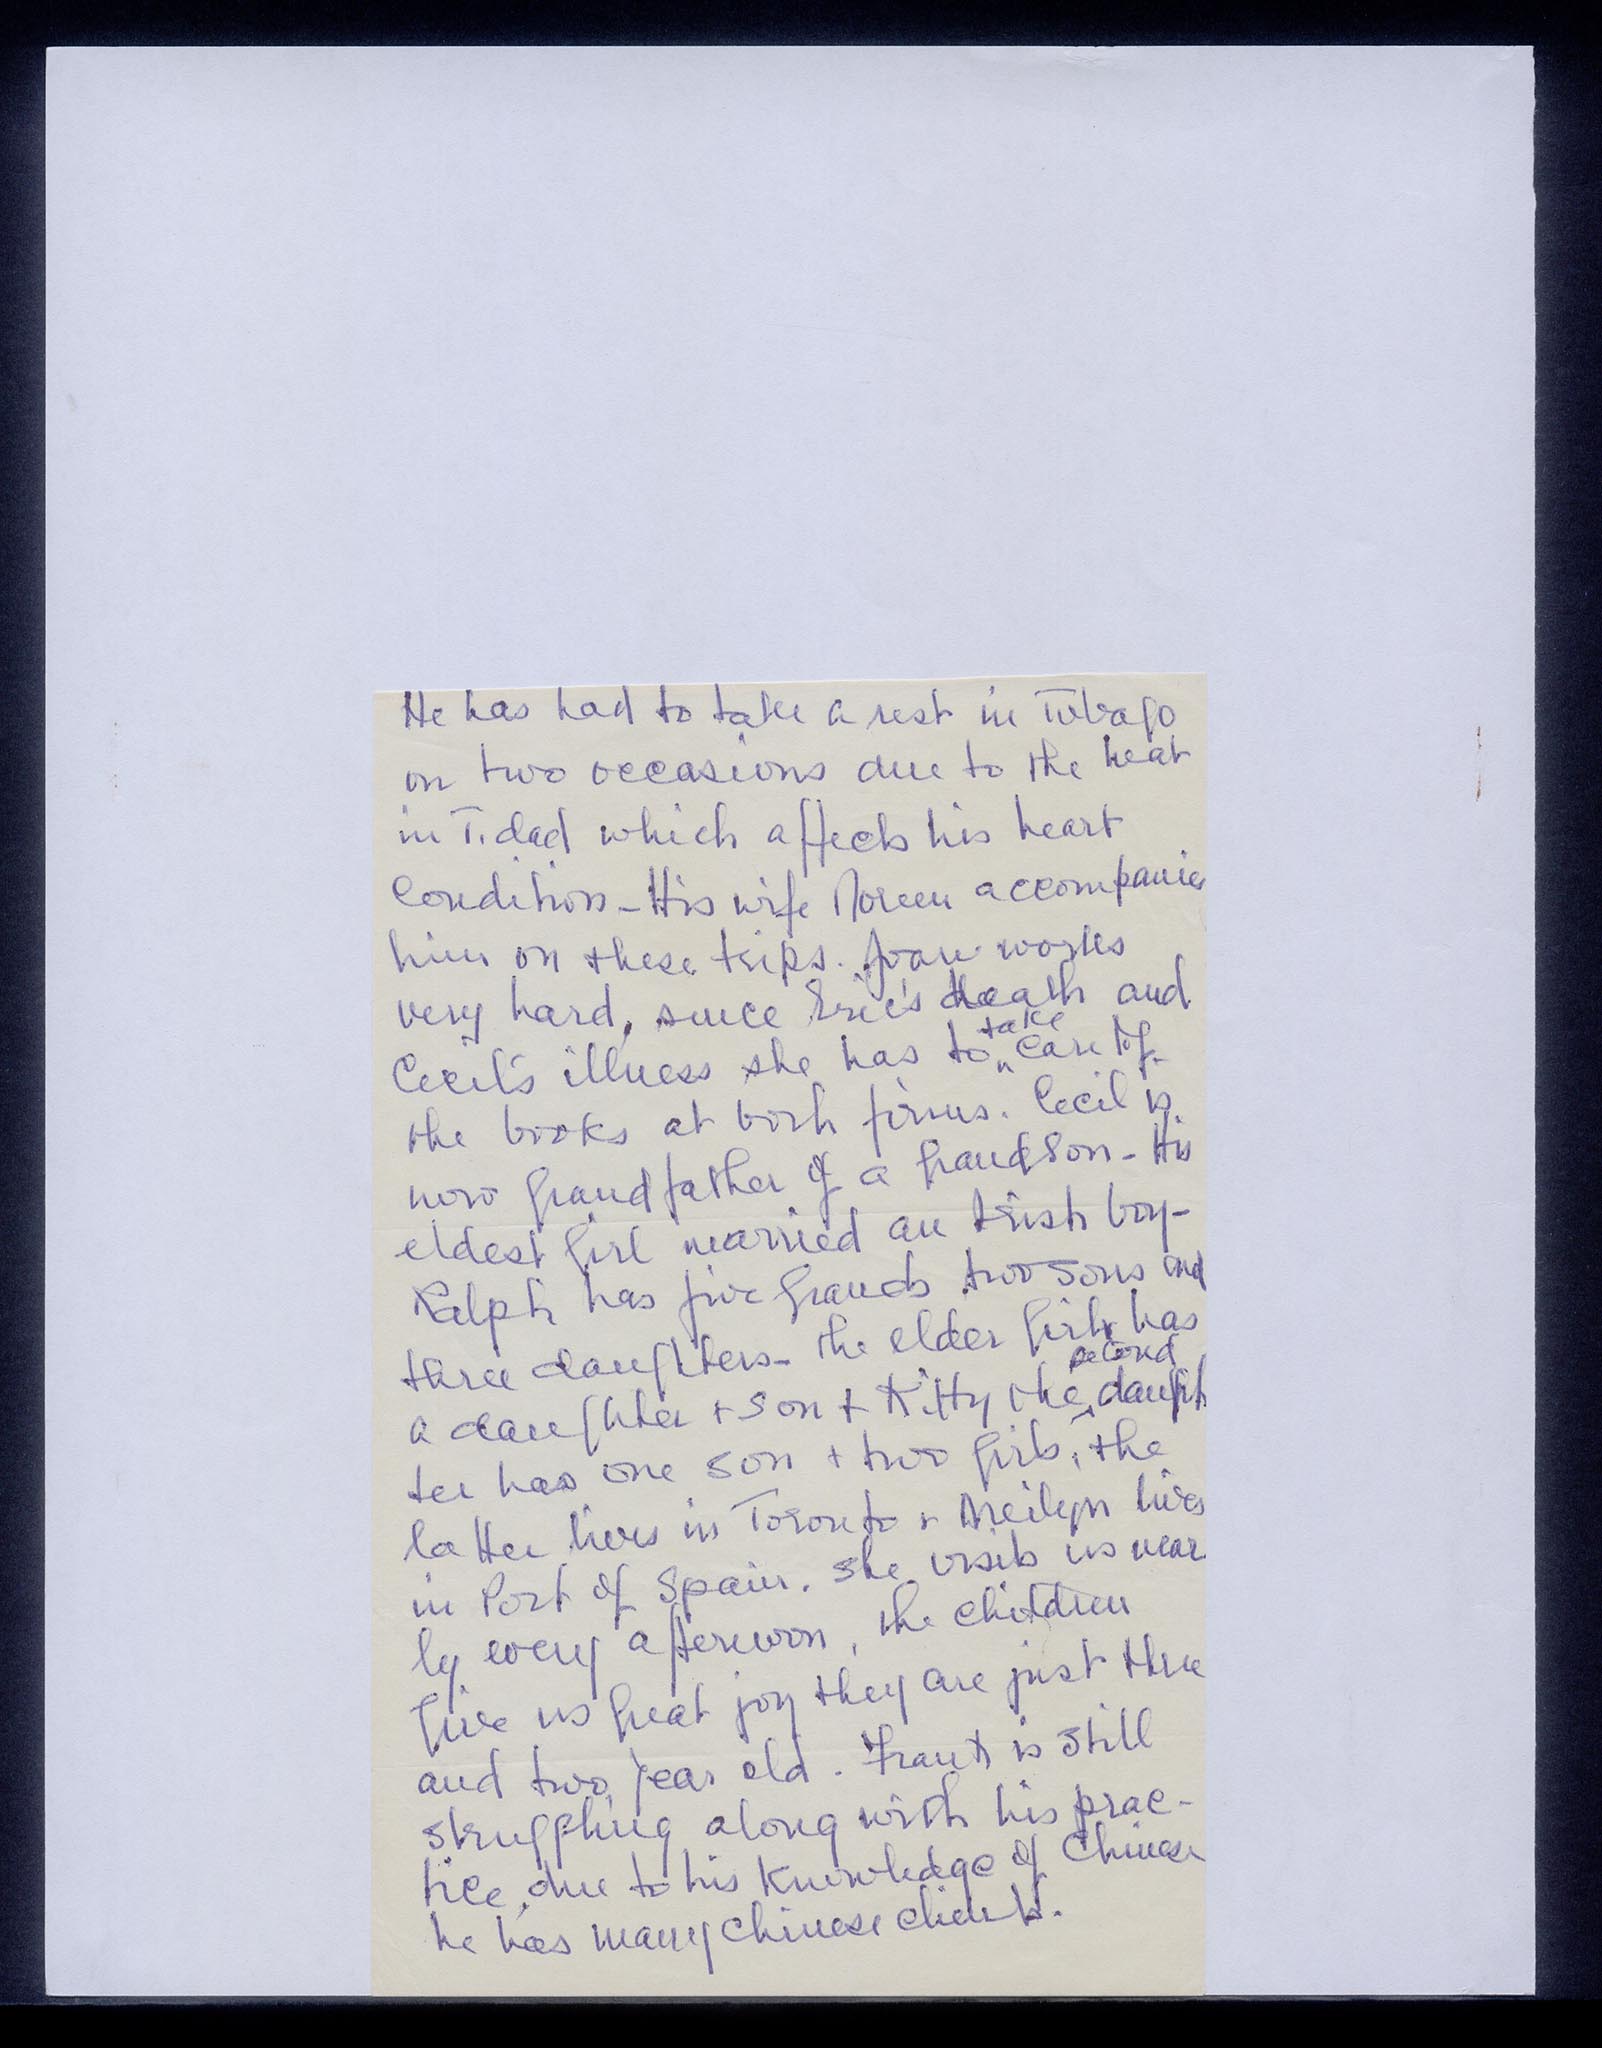 He has had to take a rest in Tobago
on two occasions due to the heat
in T.dad which affects his heart
condition - His wife Noreen accompanies
him on these trips. Joan works
very hard, since Eric's death and
Cecil's illness she has to take care of
the books at both firms. Cecil is
now grandfather of a grandson - His
eldest girl married an Irish boy -
Ralph has five grands two sons and
three daughters - the elder girl has
a daughter + son + Kitty the second daugh
ter has one son + two girls, the
latter lives in Toronto + Meilyn lives
in Port of Spain. She visits us near
ly every afternoon, the children
give us great joy they are just three
and two year old. Frank is still
struggling along with his prac-
tice, due to his knowledge of Chinese
he has many Chinese clients.